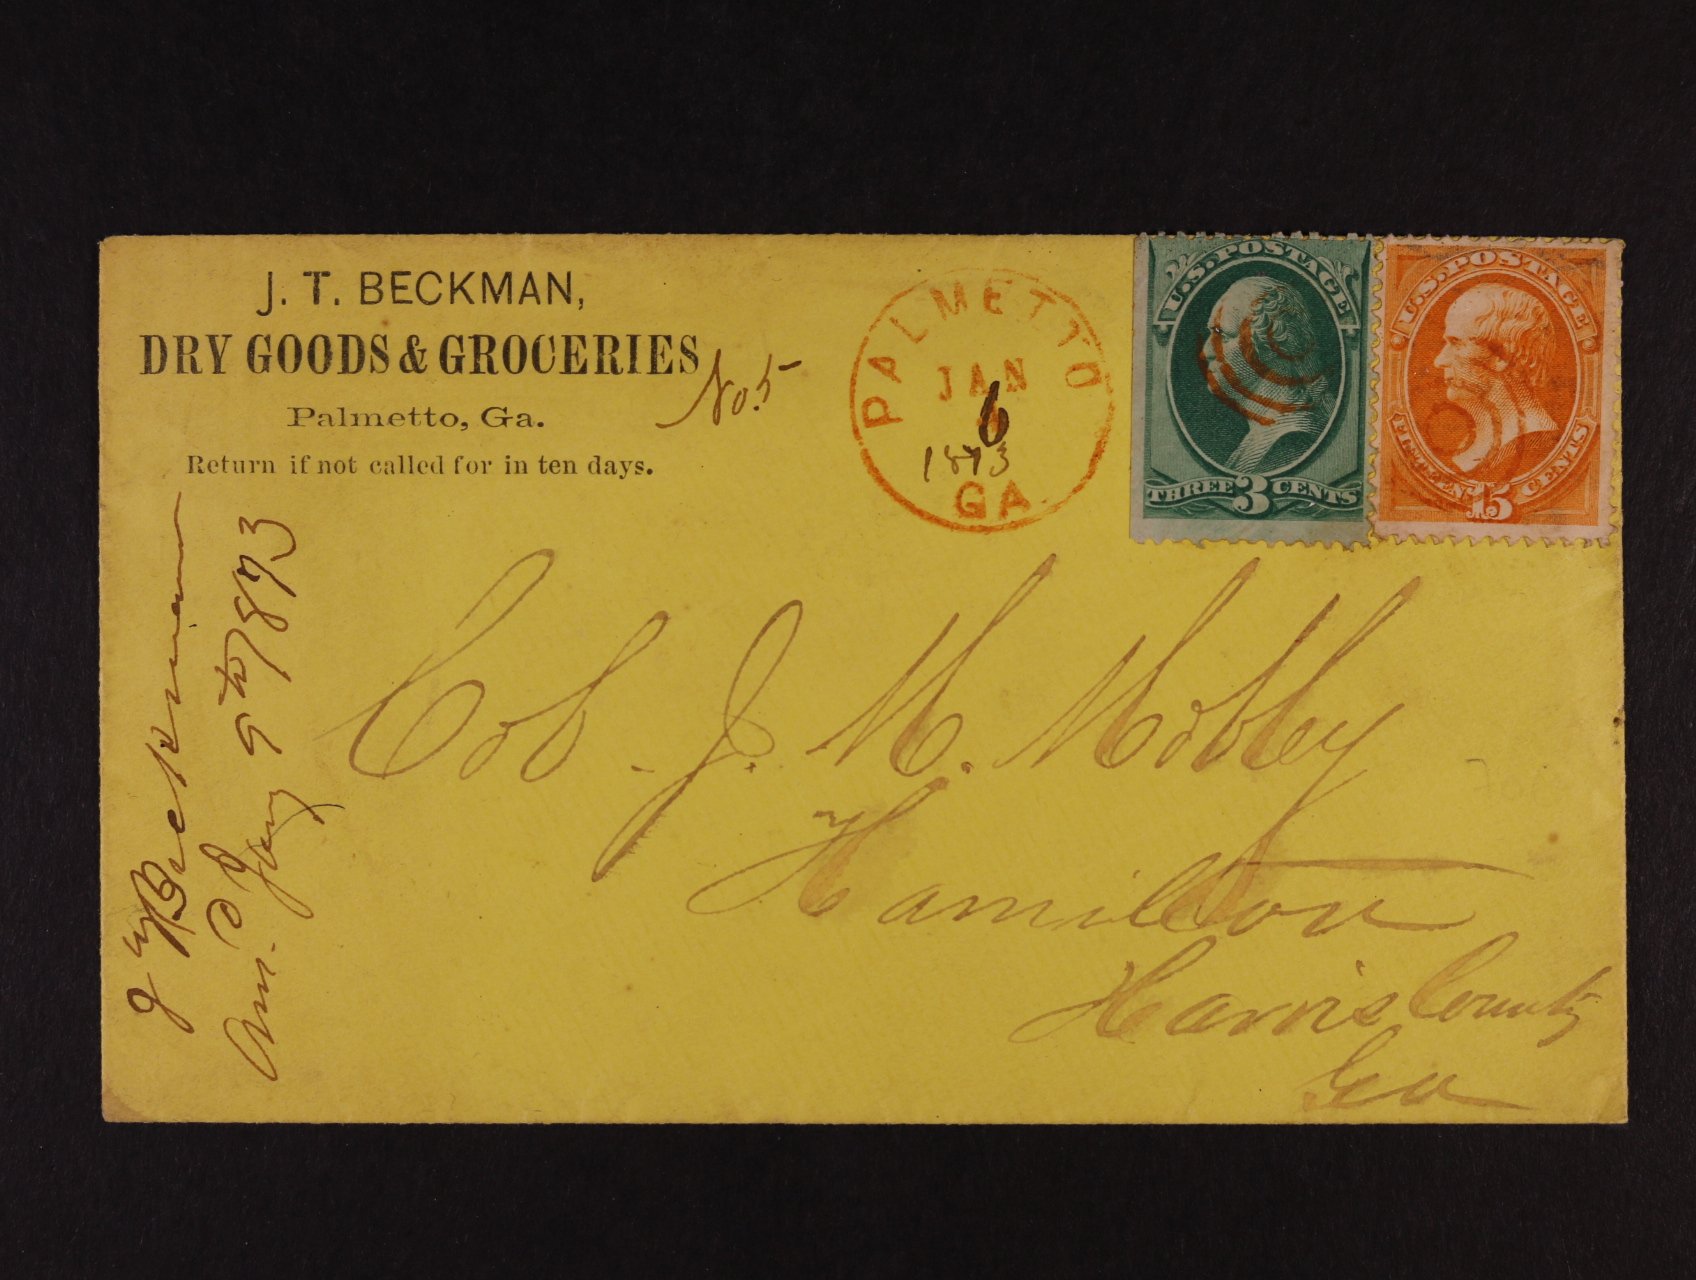 J. T. BECKMAN,
DRY GOODS & GROCERIES
Palmetto, Ga.
Return if not called for in ten days.
No. 5
PALMETTO
JAN
6
1873
GA
U.S. POSTAGE
THREE 3 CENTS
U.S. POSTAGE
FIFTEEN 15 CENTS
J Beckman
Jany 9th 1873
Col. J. M. Mobley
Hamilton
Harris County
Ga